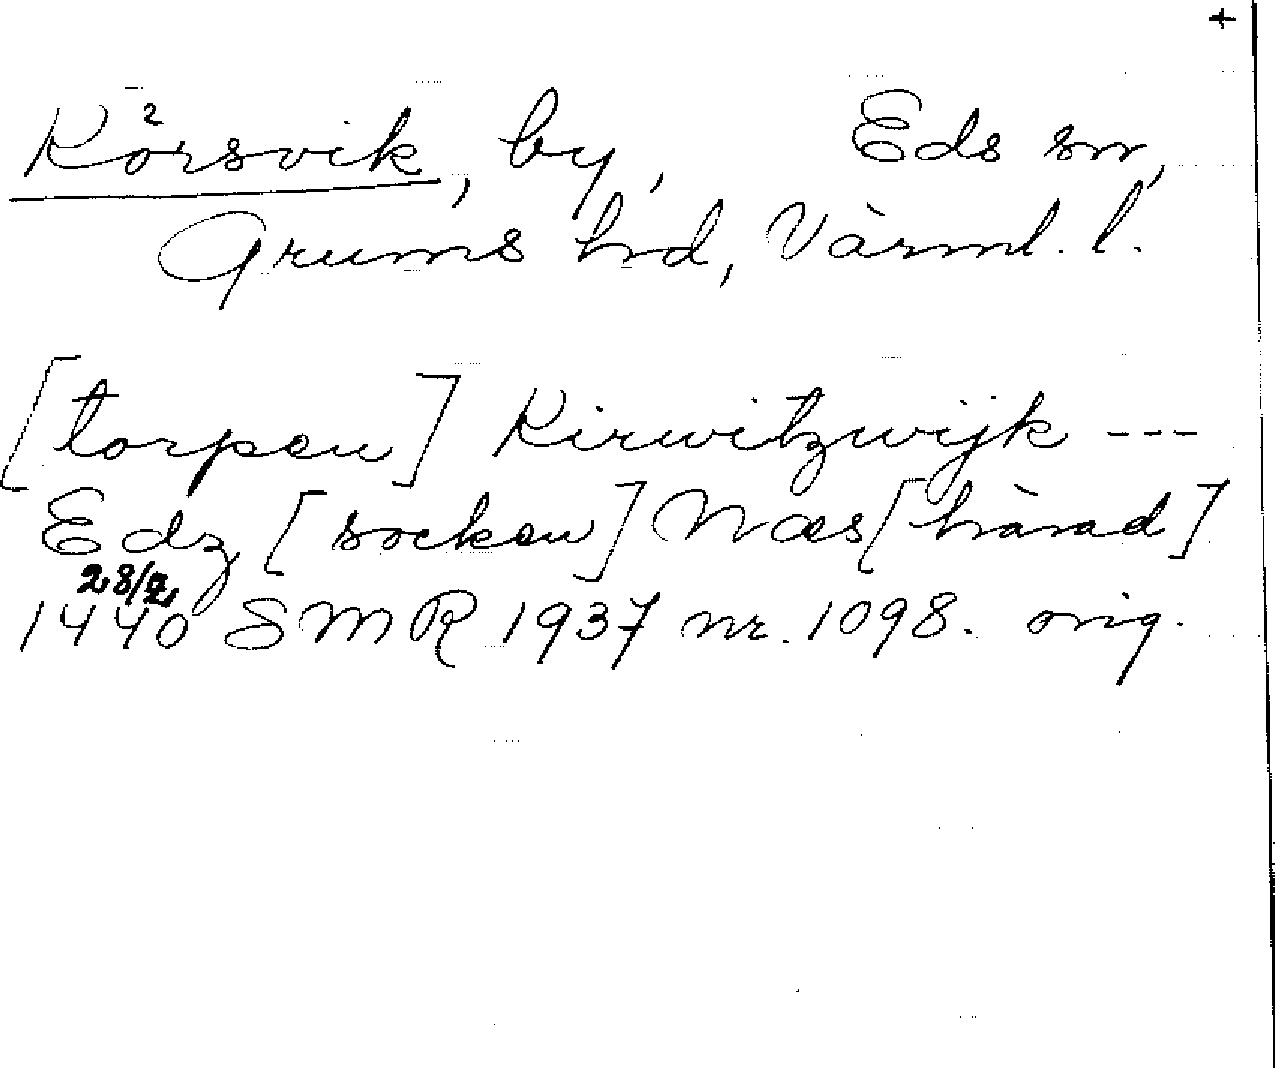 +
Körsvik, by, Eds sn,
Grums hd, Värml. l.
[torpen] Kirwitzwijk ---
Edz [socken] Næs [härad]
28/2
1440 SMR 1937 nr. 1098. orig.